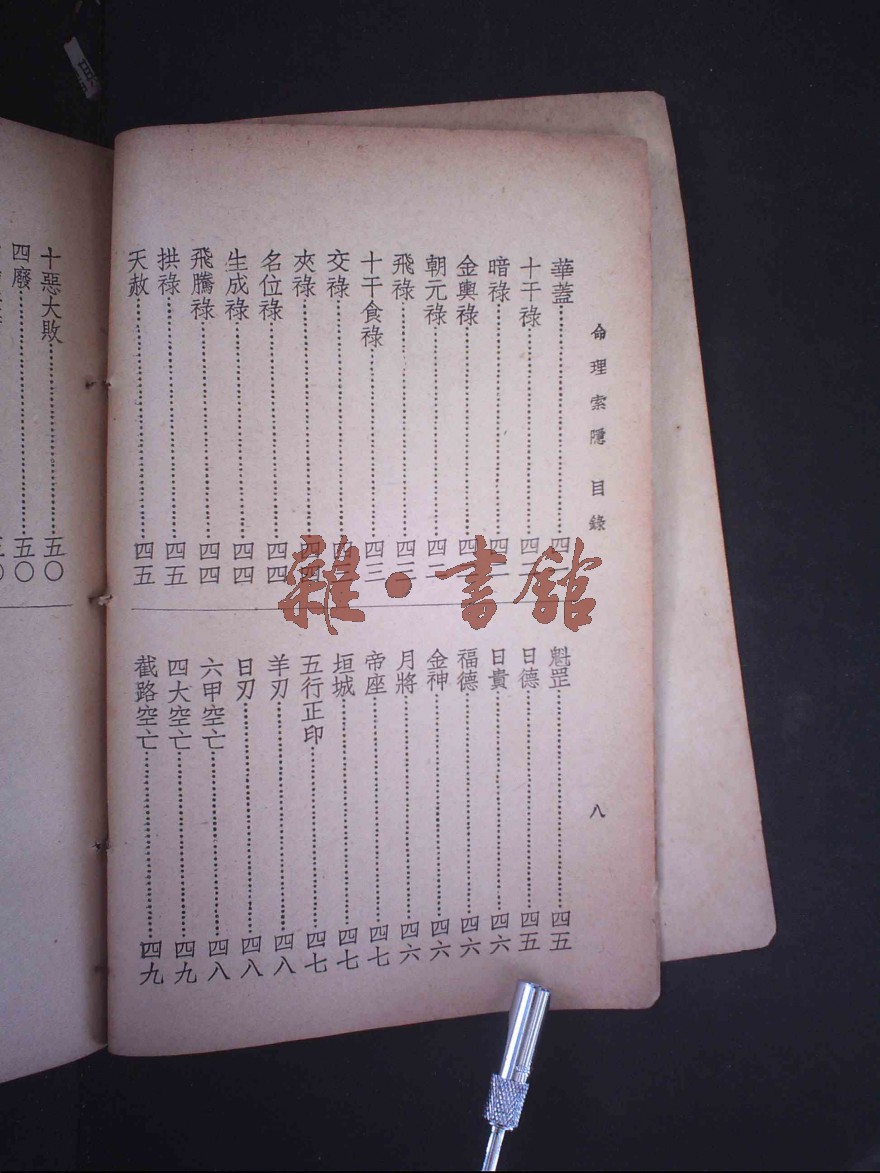 命理索隱 目錄
八
華蓋 四
十干祿 四
暗祿 四
金輿祿 四
朝元祿 四二
飛祿 四三
十干食祿 四三
交祿 四
夾祿 四
名位祿 四四
生成祿 四四
飛騰祿 四四
拱祿 四五
天赦 四五
魁罡 四五
日德 四五
日貴 四六
福德 四六
金神 四六
月將 四六
帝座 四七
垣城 四七
五行正印 四七
羊刃 四八
日刃 四八
六甲空亡 四八
四大空亡 四九
截路空亡 四九
十惡大敗 五〇
四廢 五〇
雜·書館